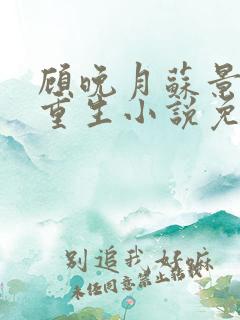 顾晚月苏景
重生小说免
别追我 好嘛
未经同意禁止转载